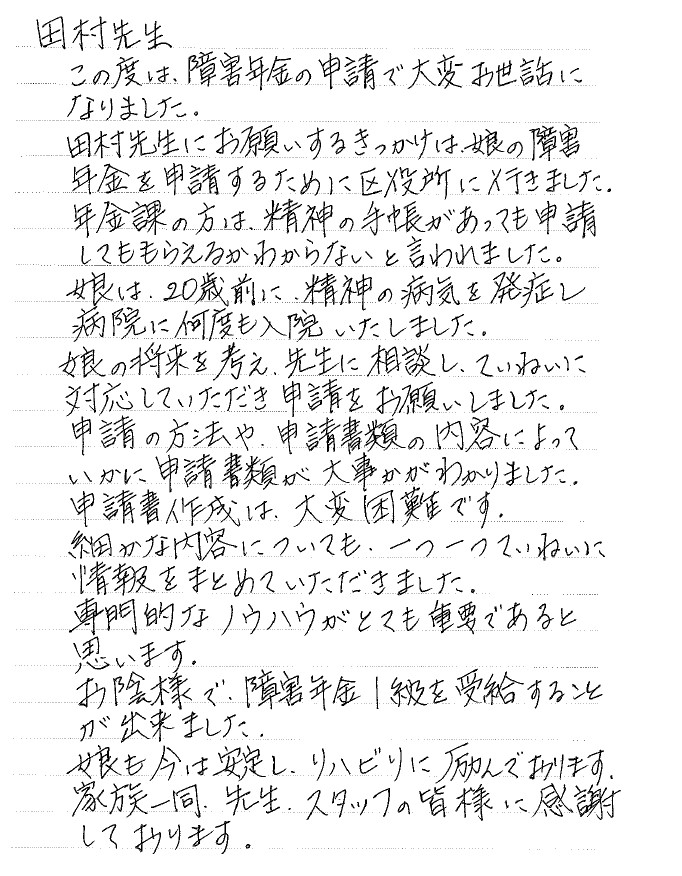 田村先生
この度は、障害年金の申請で大変お世話に
なりました。
田村先生にお願いするきっかけは、娘の障害
年金を申請するために区役所に行きました。
年金課の方は、精神の手帳があっても申請
してももらえるかわからないと言われました。
娘は、20歳前に、精神の病気を発症し
病院に何度も入院いたしました。
娘の将来を考え、先生に相談し、ていねいに
対応していただき申請をお願いしました。
申請の方法や、申請書類の内容によって
いかに申請書類が大事かがわかりました。
申請書作成は、大変困難です。
細かな内容についても、一つ一つていねいに
情報をまとめていただきました。
専門的なノウハウがとても重要であると
思います。
お陰様で、障害年金1級を受給すること
が出来ました。
娘も今は安定し、リハビリに励んでおります。
家族一同、先生、スタッフの皆様に感謝
しております。